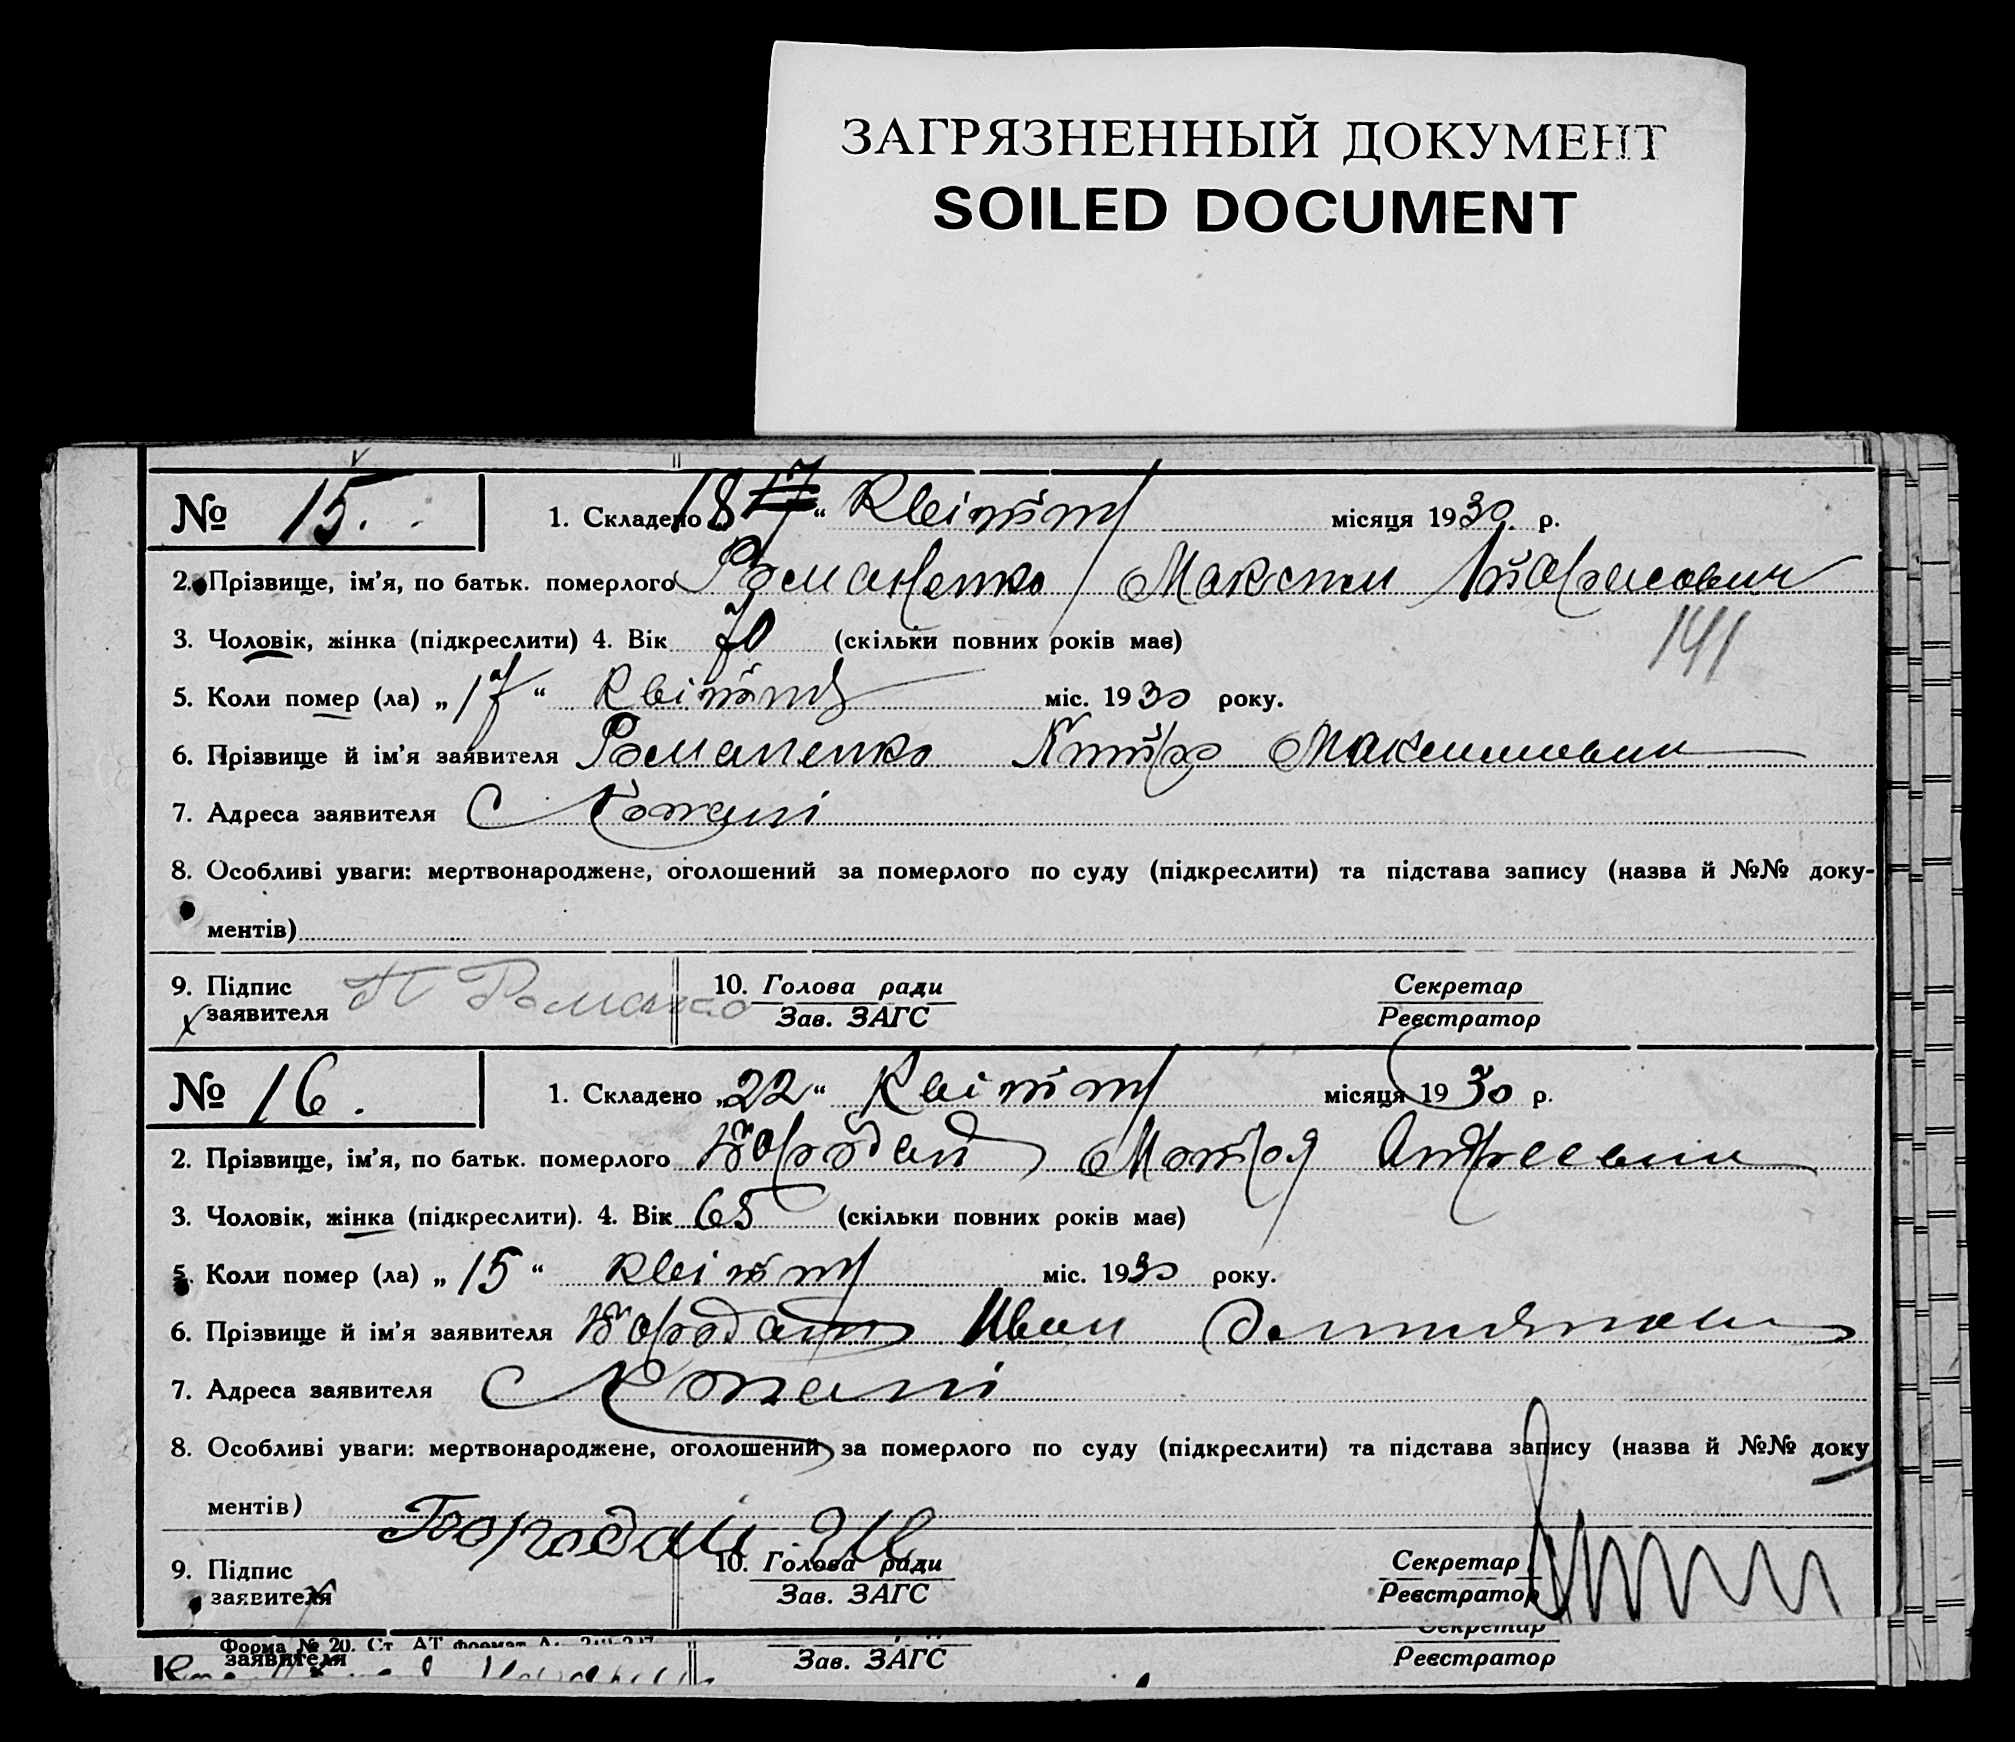 ЗАГРЯЗНЕННЫЙ ДОКУМЕНТ
SOILED DOCUMENT
№ 15. 1. Складено „18 17“ Квітня місяця 1930. р.
2. Прізвище, ім'я, по батьк. померлого Романенко Максим
3. Чоловік, жінка (підкреслити) 4. Вік 70 (скільки повних років має)
141
5. Коли помер (ла) „17“ Квітня міс. 1930 року.
6. Прізвище й ім'я заявителя Романенко Максимович
7. Адреса заявителя С Копані
8. Особливі уваги: мертвонароджене, оголошений за померлого по суду (підкреслити) та підстава запису (назва й №№ доку-
ментів)
9. Підпис заявителя П 10. Голова ради Зав. ЗАГС Секретар Реєстратор
№ 16. 1. Складено „22“ Квітня місяця 1930 р.
2. Прізвище, ім'я, по батьк. померлого Бородай Мотря Андреевна
3. Чоловік, жінка (підкреслити). 4. Вік 65 (скільки повних років має)
5. Коли помер (ла) „15“ Квітня міс. 1930 року.
6. Прізвище й ім'я заявителя Бородай Иван
7. Адреса заявителя С Копані
8. Особливі уваги: мертвонароджене, оголошений за померлого по суду (підкреслити) та підстава запису (назва й №№ доку
ментів)
Бородай Ив
9. Підпис заявителя 10. Голова ради Зав. ЗАГС Секретар Реєстратор
Форма № 20.
заявителя Зав. ЗАГС Секретар Реєстратор